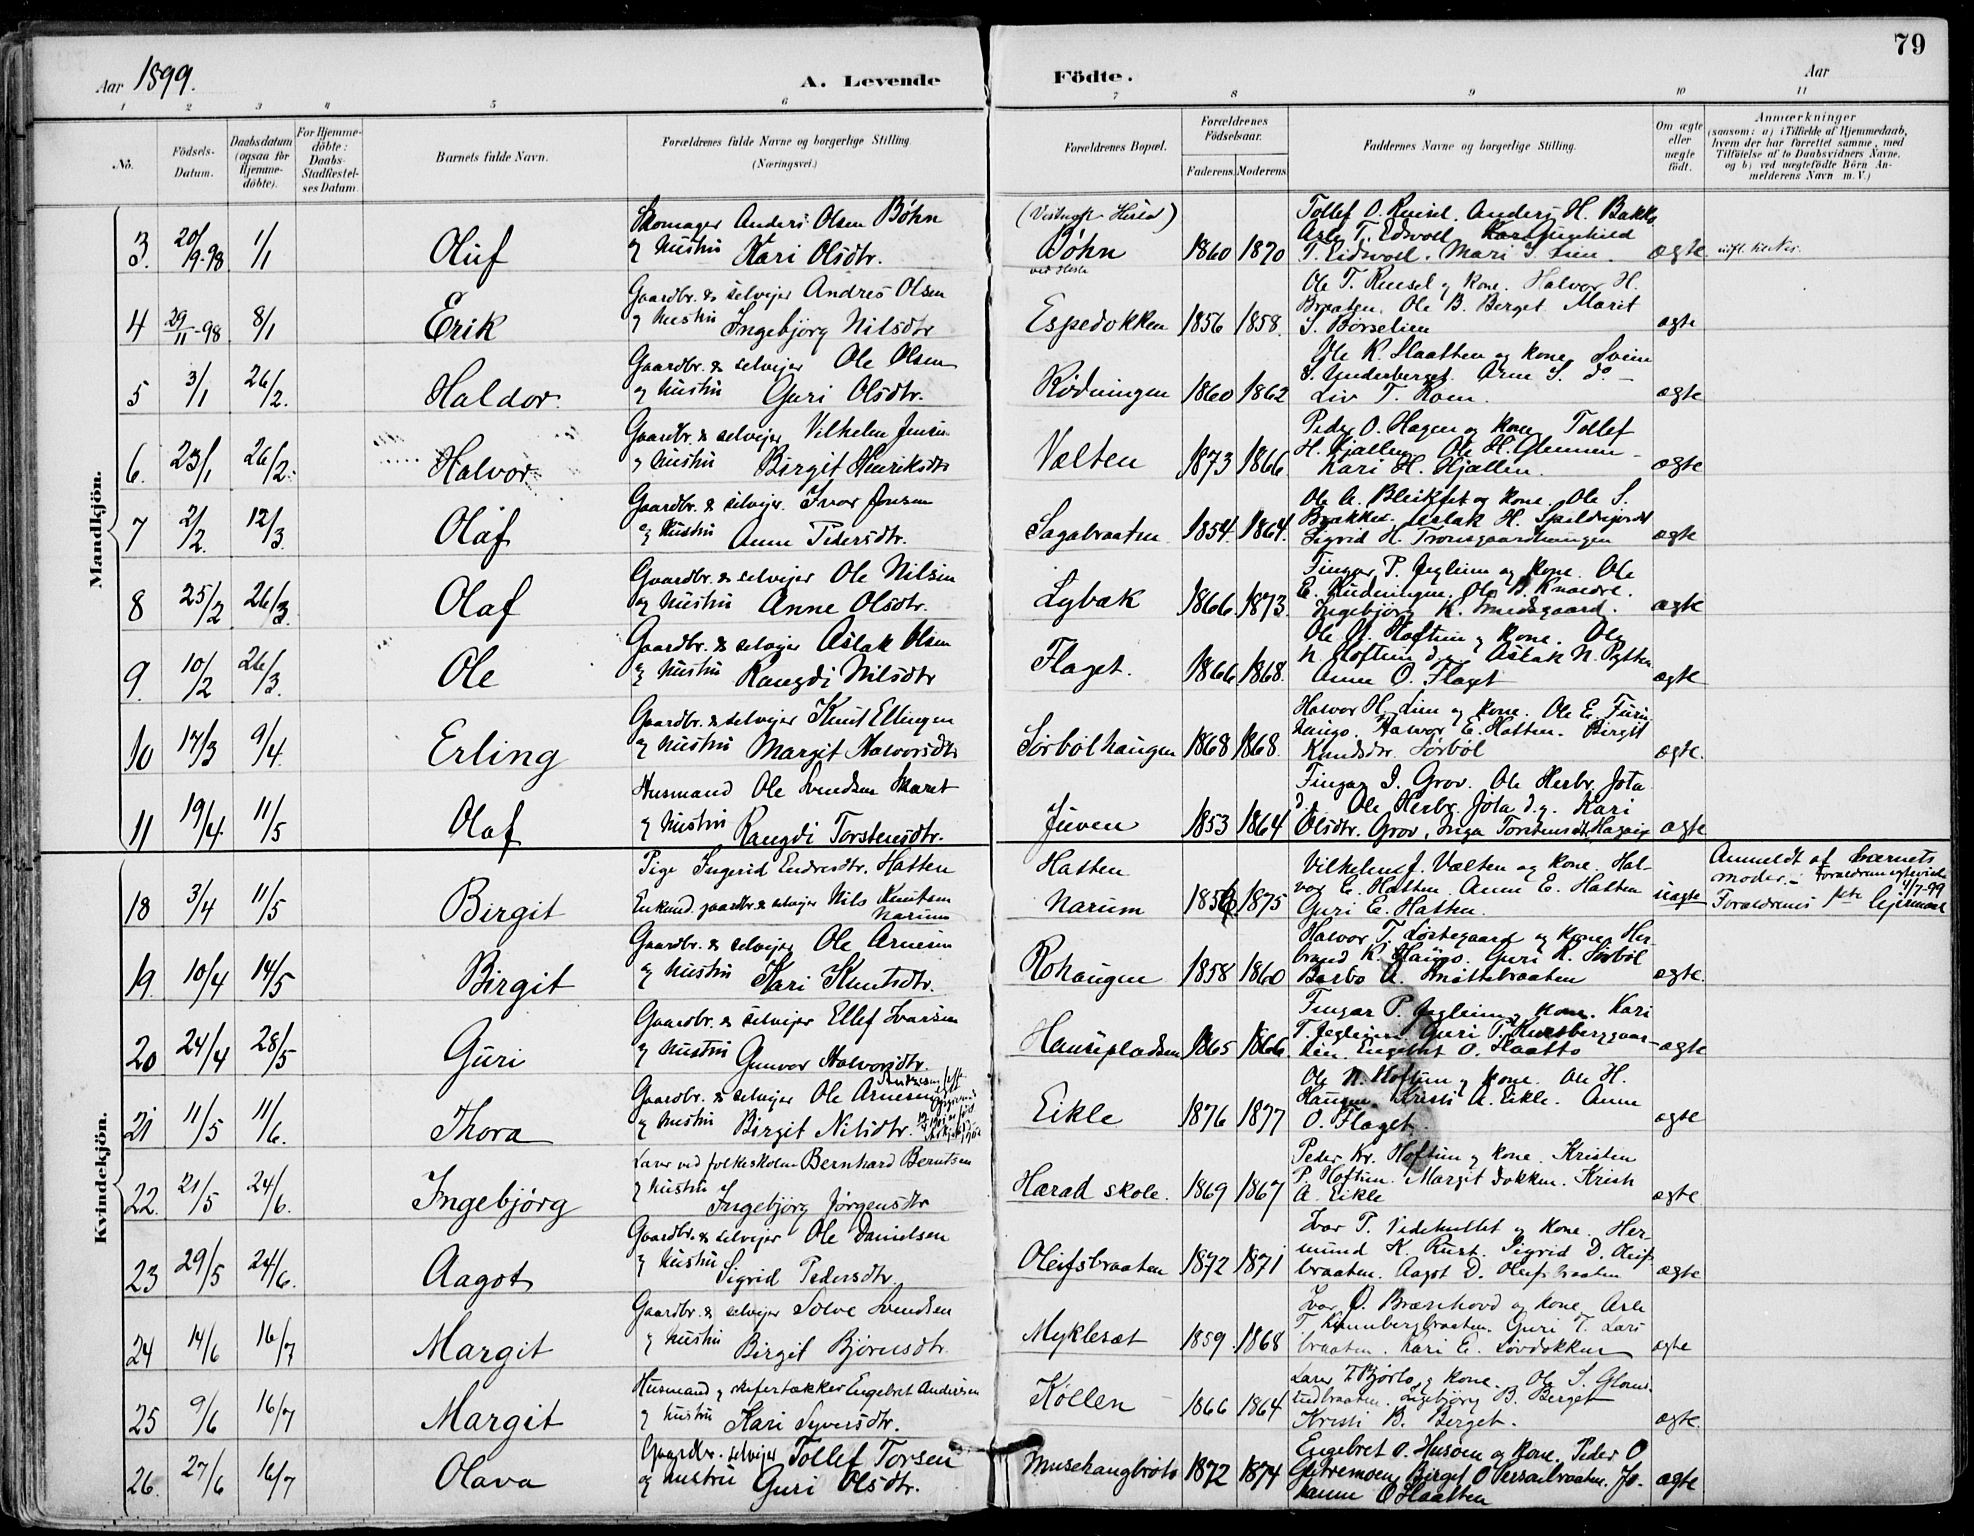 79
Aar 1899.
A. Levende Födte.
Aar
1 2 3 4 5 6 7 8 9 10 11
No.
Födsels-Datum.
Daabsdatum (ogsaa for Hjemme-döbte).
For Hjemme-döbte: Daabs-Stadfæstel-ses Datum.
Barnets fulde Navn.
Forældrenes fulde Navne og borgerlige Stilling. (Næringsvei.)
Forældrenes Bopæl.
Forældrenes Födselsaar.
Faderens. Moderens.
Faddernes Navne og borgerlige Stilling.
Om ægte eller uægte födt.
Anmærkninger
(saasom: a) i Tilfælde af Hjemmedaab, hvem der har forrettet samme, med Tilföielse af to Daabsvidners Navne, og b) ved uægtefödte Börn Anmelderens Navn m. V.)
Mandkjön.
3. 20/9-98 1/1 Oluf
Skomager Anders Olsen Bøhn
og hustru Kari Olsdtr.
Bøhn
1860 1870
Tollef O. Ruisel. Anders H. Bakke
T. Eidsvoll. Mari S. Lien.
ægte
4 29/11-98 8/1 Erik
Gaardbr. & selvejer Andres Olsen
og hustru Ingebjørg Nilsdtr
Espedokken 1856 1858.
Ole T. Ruusel og kone. Halvor H.
Braaten. Ole B. Berget. Marit
S. Børselien
ægte
5 3/1 26/2. Haldor.
Gaardbr. & selvejer Ole Olsen
og hustru Guri Olsdtr.
Rødningen 1860 1862
Ole K. Slaatten og kone. Svein
S. Underberget. Arne S. do
Liv T. Roen.
ægte
6. 23/1 26/2. Halvor
Gaardbr. & selvejer Vilhelm Jensen
og hustru Birgit Henriksdtr
Vælten 1873 1866
Peder O. Hagen og kone. Tollef
H. Hjallen. Ole H. Glennen
Kari H. Hjallen.
ægte
7 2/2. 12/3. Olaf
Gaardbr. & selvejer. Ivar Jonsen
og hustru Anne Pedersdtr.
Sagabraaten 1854. 1864.
Ole A. Bleikfet og kone. Ole S.
Brækken. Aslak H.
Sigrid H. Tronsgaardhaugen
ægte
8 25/2 26/3. Olaf
Gaardbr. & selvejer Ole Nilsen
og hustru Anne Olsdtr.
Lybæk 1866 1873.
Fingar P. Jeglum og kone. Ole
E. Rudningen. Ole B. Knædre.
Ingebjørg K. Medgaard.
ægte
9. 10/2 26/3. Ole
Gaardbr. & selvejer Aslak Olsen
og hustru Rangdi Nilsdtr
Flaget. 1866. 1868.
Ole N. Hoftun og kone. Ole
N. Hoftun d.y. Aslak N. Pytten
Anne O. Flaget
ægte
10 17/3 9/4. Erling
Gaardbr. & selvejer Knut Ellingsen
og hustru Margit Halvorsdtr
Sørbølhaugen 1868 1868.
Halvor H. Lien og kone. Ole E. Furu-
haugo. Halvor E. Hatten. Birgit
Knudsdtr. Sørbøl
ægte.
11 19/4. 11/5 Olaf
Husmand Ole Svendsen Skaret
og hustru Rangdi Torstensdtr.
Juven 1853 1864
Fingar I. Grov. Ole Herbr. Jota
d. Ole Herbr. Jota d.y. Kari
Olsdtr. Grov, Inga Torstensdtr.
ægte
Kvindekjön.
18 3/4 11/5 Birgit
Pige Ingerid Endresdtr. Hatten
Enkemd. gaardbr. & selvejer Nils Knutsen
Narum
Hatten
Narum 1856 1875
Vilhelm J. Vælten og kone. Hal-
vor E. Hatten. Anne E. Hatten
Guri E. Hatten.
uægte
Anmeldt af barnets
moder.
4/7-99
19. 10/4 14/5 Birgit
Gaardbr. & selvejer Ole Arnesen
og hustru Kari Knutsdtr.
Rohaugen 1858 1860
Halvor T. Løstegaard og kone. Her-
brand K. Haugo. Guri K. Sørbøl
Barbo A. Snøttebraaten
ægte.
20 24/4 28/5 Guri
Gaardbr. & selvejer Ellef Ivarsen
og hustru Gunvor Halvorsdtr.
Haugepladsen 1865 1866
Fingar P. Jeglum og kone. Kari
T. Jeglum. Guri P.
Engebret O. Slaatto
ægte
21 11/5 11/6. Thora
Gaardbr. & selvejer Ole Arnesen
og hustru Birgit Nilsdtr.
Eikle 1876 1877
Ole N. Hoftun og kone. Ole H.
Haugen. Kristi A. Eikle. Anne
O. Flaget.
ægte
22. 21/5 24/6. Ingebjørg
Lærer ved folkeskolen Bernhard Berntsen
og hustru Ingebjørg Jørgensdtr
Harad skole. 1869 1867
Peder Kr. Hoftun og kone. Kristen
P. Hoftun. Margit Dokken. Kristi
A. Eikle
ægte.
23 29/5 24/6. Aagot
Gaardbr. & selvejer Ole Danielsen
og hustru Sigrid Pedersdtr.
Oleifsbraaten 1872 1871
Ivar P. Videhullet og kone. Her-
mund K. Rust. Sigrid D. Oleifs-
braaten. Aagot D. Oleifsbraaten
ægte
24 14/6 16/7 Margit
Gaardbr. & selvejer Solve Svendsen
og hustru Birgit Bjørnsdtr.
Myklesæt 1859. 1868
Ivar O. Bræsehovd og kone. Asle
T. Guri T. Lars
braaten. Kari E. Løvdokken
ægte
25 9/6 16/7 Margit
Husmand og skifertækker Engebret Andersen
og hustru Kari Syversdtr.
Køllen 1866 1864
Lærer T. Bjørlo og kone. Ole S. Gloms-
rudbraaten. Ingebjørg B. Berget
Kristi B. Berget.
ægte.
26. 27/6 16/7 Olava
Gaardbr. selvejer Tollef Torsen
og hustru Guri Olsdtr.
Musehaugbrøto 1872 1874
Engebret O. Husoen og kone. Peder O
Birgit O Jo-
hanne O Slaatten
ægte